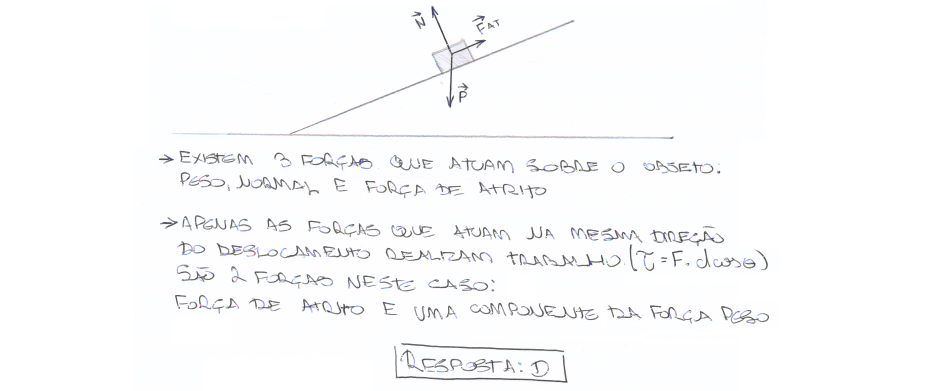 N
FAT
P
→ EXISTEM 3 FORÇAS QUE ATUAM SOBRE O OBJETO:
PESO, NORMAL E FORÇA DE ATRITO
→ APENAS AS FORÇAS QUE ATUAM NA MESMA DIREÇÃO
DO DESLOCAMENTO REALIZAM TRABALHO (τ = F. d cos θ)
SÃO 2 FORÇAS NESTE CASO:
FORÇA DE ATRITO E UMA COMPONENTE DA FORÇA PESO
RESPOSTA: D